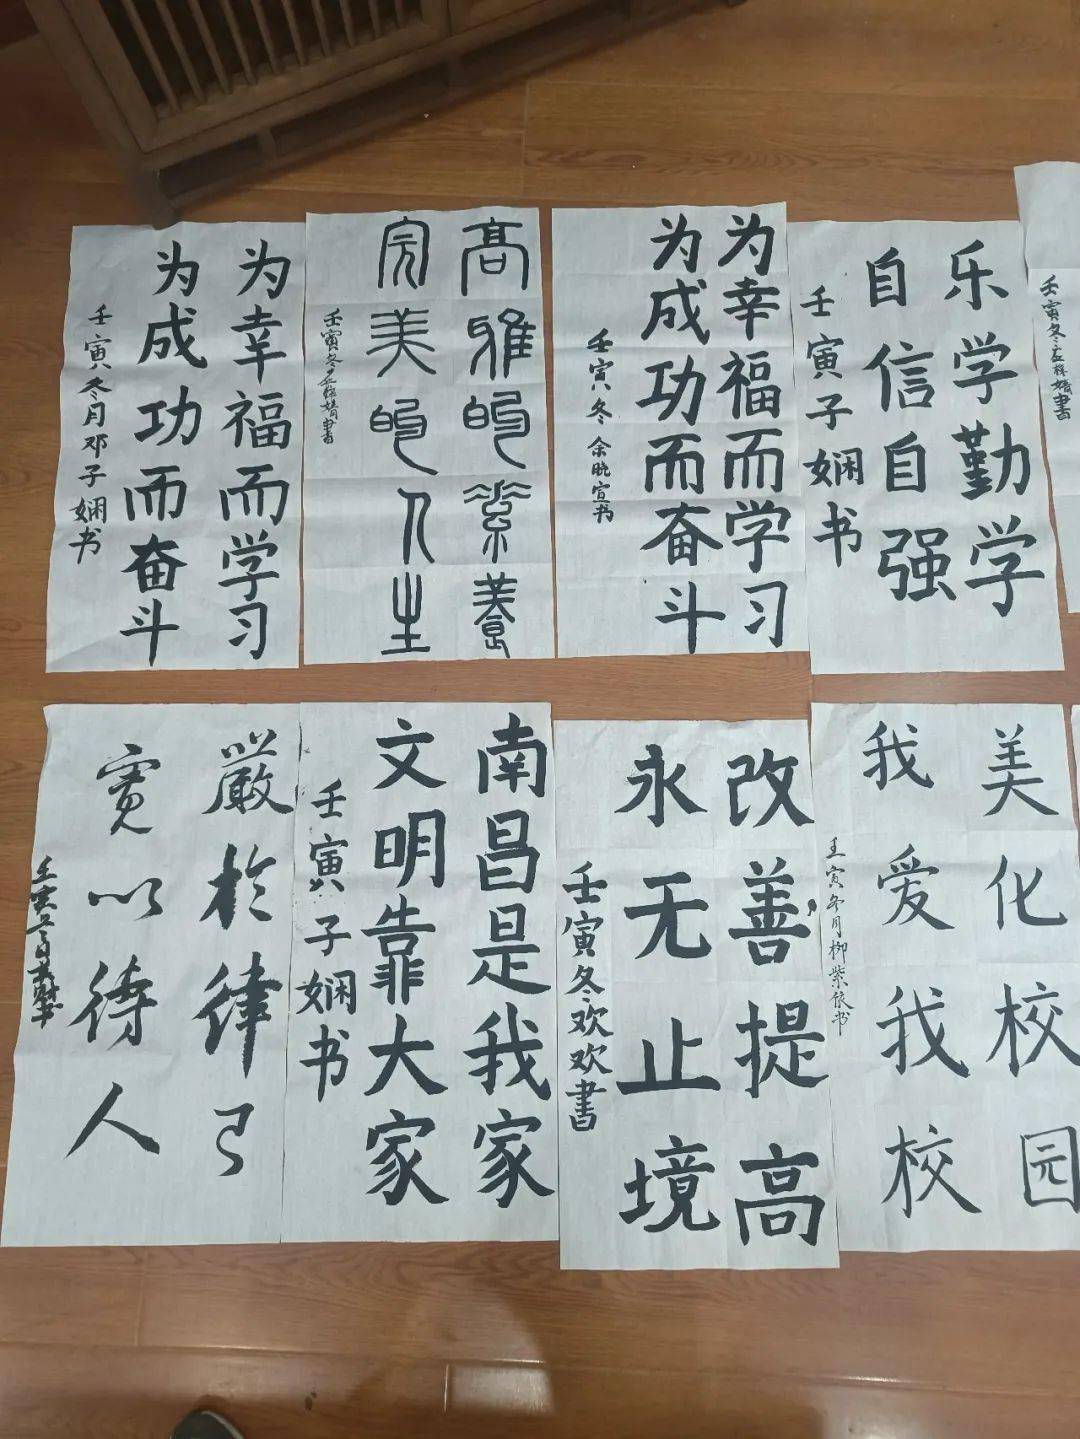 为幸福而学习
为成功而奋斗
壬寅冬月邓子娴书
高雅的素養
完美的人生
壬寅冬
为幸福而学习
为成功而奋斗
壬寅冬余晓宣书
乐学勤学
自信自强
壬寅子娴书
壬寅冬
嚴於律己
寛以待人
南昌是我家
文明靠大家
壬寅子娴书
改善提高
永无止境
壬寅冬欢欢書
美化校园
我爱我校
壬寅冬月柳紫依书